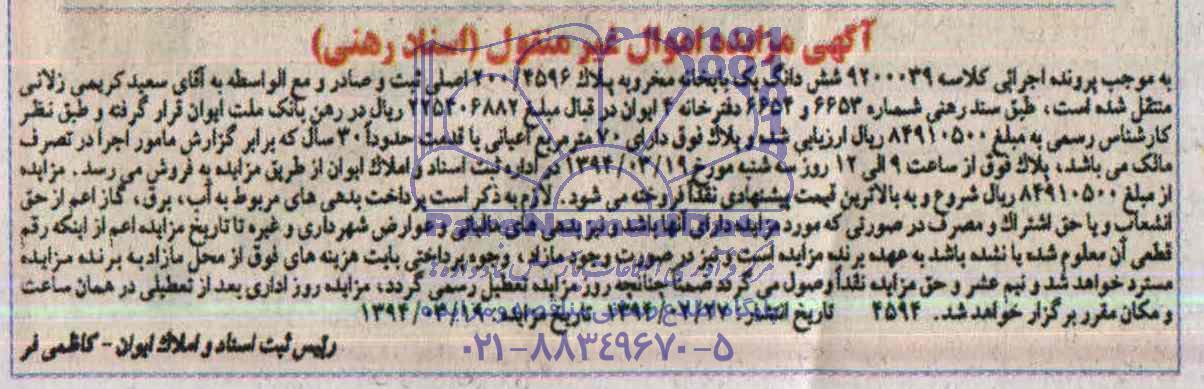 آگهی مزایده اموال غیر منقول (اسناد رهنی)
به موجب پرونده اجرائی کلاسه ۹۲۰۰۰۳۹ شش دانگ یک بابخانه مخروبه پلاک ۴۵۹۶ اصلی ثبت و صادر و مع الواسطه به آقای سعید کریمی زلانی
منتقل شده است، طبق سند رهنی شماره ۶۶۵۳ و ۶۶۵۴ دفترخانه ۴ ایوان در قبال مبلغ ۲۲۵۴۰۶۸۸۲ ریال در رهن بانک ملت ایوان قرار گرفته و طبق نظر
کارشناس رسمی به مبلغ ۸۴۹۱۰۵۰۰ ریال ارزیابی شده و پلاک فوق دارای ۷۰ مترمربع اعیانی با قدمت حدوداً ۳۰ سال که برابر گزارش مامور اجرا در تصرف
مالک می باشد، پلاک فوق از ساعت ۹ الی ۱۲ روز سه شنبه مورخ ۱۳۹۴/۰۳/۱۹ در اداره ثبت اسناد و املاک ایوان از طریق مزایده به فروش می رسد. مزایده
از مبلغ ۸۴۹۱۰۵۰۰ ریال شروع و به بالاترین قیمت پیشنهادی نقداً فروخته می شود. لازم به ذکر است پرداخت بدهی های مربوط به آب، برق، گاز اعم از حق
انشعاب و یا حق اشتراک و مصرف در صورتی که مورد مزایده دارای آنها باشد و نیز بدهی های مالیاتی و عوارض شهرداری و غیره تا تاریخ مزایده اعم از اینکه رقم
قطعی آن معلوم شده یا نشده باشد به عهده برنده مزایده است و نیز در صورت وجود مازاد، وجوه پرداختی بابت هزینه های فوق از محل مازاد به برنده مزایده
مسترد خواهد شد و نیم عشر و حق مزایده نقداً وصول می گردد ضمناً چنانچه روز مزایده تعطیل رسمی گردد، مزایده روز اداری بعد از تعطیلی در همان ساعت
و مکان مقرر برگزار خواهد شد. ۴۵۹۴ تاریخ انتشار: ۱۳۹۴/۰۲/۲۷ تاریخ مزایده:
رئیس ثبت اسناد و املاک ایوان - کاظمی فر
۰۲۱-۸۸۳۴۹۶۷۰-۵